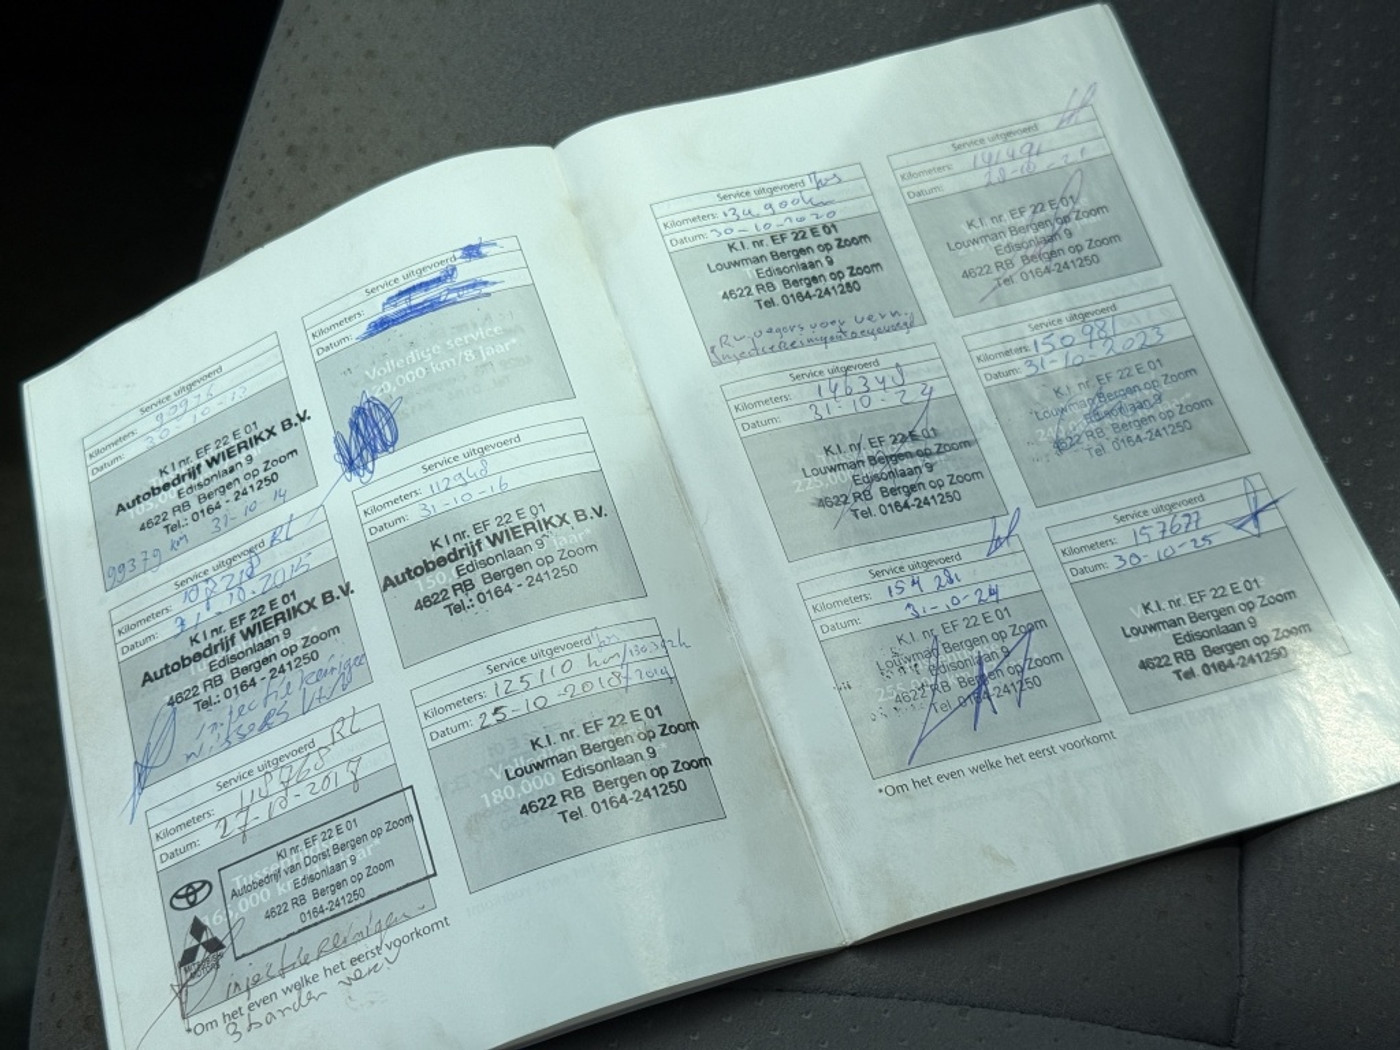 Service uitgevoerd
Kilometers: 90975
Datum: 30-10-13
K I nr. EF 22 E 01
Autobedrijf WIERIKX B.V.
Edisonlaan 9
4622 RB Bergen op Zoom
Tel.: 0164 - 241250
99379 km 31-10-14
Service uitgevoerd RL
Kilometers:
Datum: 31-10-2015
K I nr. EF 22 E 01
Autobedrijf WIERIKX B.V.
Edisonlaan 9
4622 RB Bergen op Zoom
Tel.: 0164 - 241250
injectie reinigen
Service uitgevoerd RL
Kilometers: 118768
Datum: 27-10-2017
KI nr. EF 22 E 01
Autobedrijf van Dorst Bergen op Zoom
Edisonlaan 9
4622 RB Bergen op Zoom
0164-241250
MITSUBISHI MOTORS
injectie Reinigen
*Om het even welke het eerst voorkomt
3 banden verv
Service uitgevoerd
Kilometers:
Datum:
Volledige service
120,000 km/8 jaar*
Service uitgevoerd
Kilometers: 112948
Datum: 31-10-16
K I nr. EF 22 E 01
Autobedrijf WIERIKX B.V.
Edisonlaan 9
4622 RB Bergen op Zoom
Tel.: 0164 - 241250
Service uitgevoerd
Kilometers: 125110 km
Datum: 25-10-2018 / 2019
K.I. nr. EF 22 E 01
Louwman Bergen op Zoom
Edisonlaan 9
4622 RB Bergen op Zoom
Tel. 0164-241250
180,000
Service uitgevoerd
Kilometers: 134.900km
Datum: 30-10-2020
K.I. nr. EF 22 E 01
Louwman Bergen op Zoom
Edisonlaan 9
4622 RB Bergen op Zoom
Tel. 0164-241250
Service uitgevoerd
Kilometers: 146348
Datum: 31-10-22
K.I. nr. EF 22 E 01
Louwman Bergen op Zoom
Edisonlaan 9
4622 RB Bergen op Zoom
Tel. 0164-241250
Service uitgevoerd
Kilometers: 154 281
Datum: 31-10-24
K.I. nr. EF 22 E 01
Louwman Bergen op Zoom
Edisonlaan 9
4622 RB Bergen op Zoom
Tel. 0164-241250
*Om het even welke het eerst voorkomt
Service uitgevoerd
Kilometers: 141491
Datum: 28-10-21
K.I. nr. EF 22 E 01
Louwman Bergen op Zoom
Edisonlaan 9
4622 RB Bergen op Zoom
Tel. 0164-241250
Service uitgevoerd
Kilometers: 150981
Datum: 31-10-2023
K.I. nr. EF 22 E 01
Louwman Bergen op Zoom
Edisonlaan 9
4622 RB Bergen op Zoom
Tel. 0164-241250
Service uitgevoerd
Kilometers: 157677
Datum: 30-10-25
K.I. nr. EF 22 E 01
Louwman Bergen op Zoom
Edisonlaan 9
4622 RB Bergen op Zoom
Tel. 0164-241250